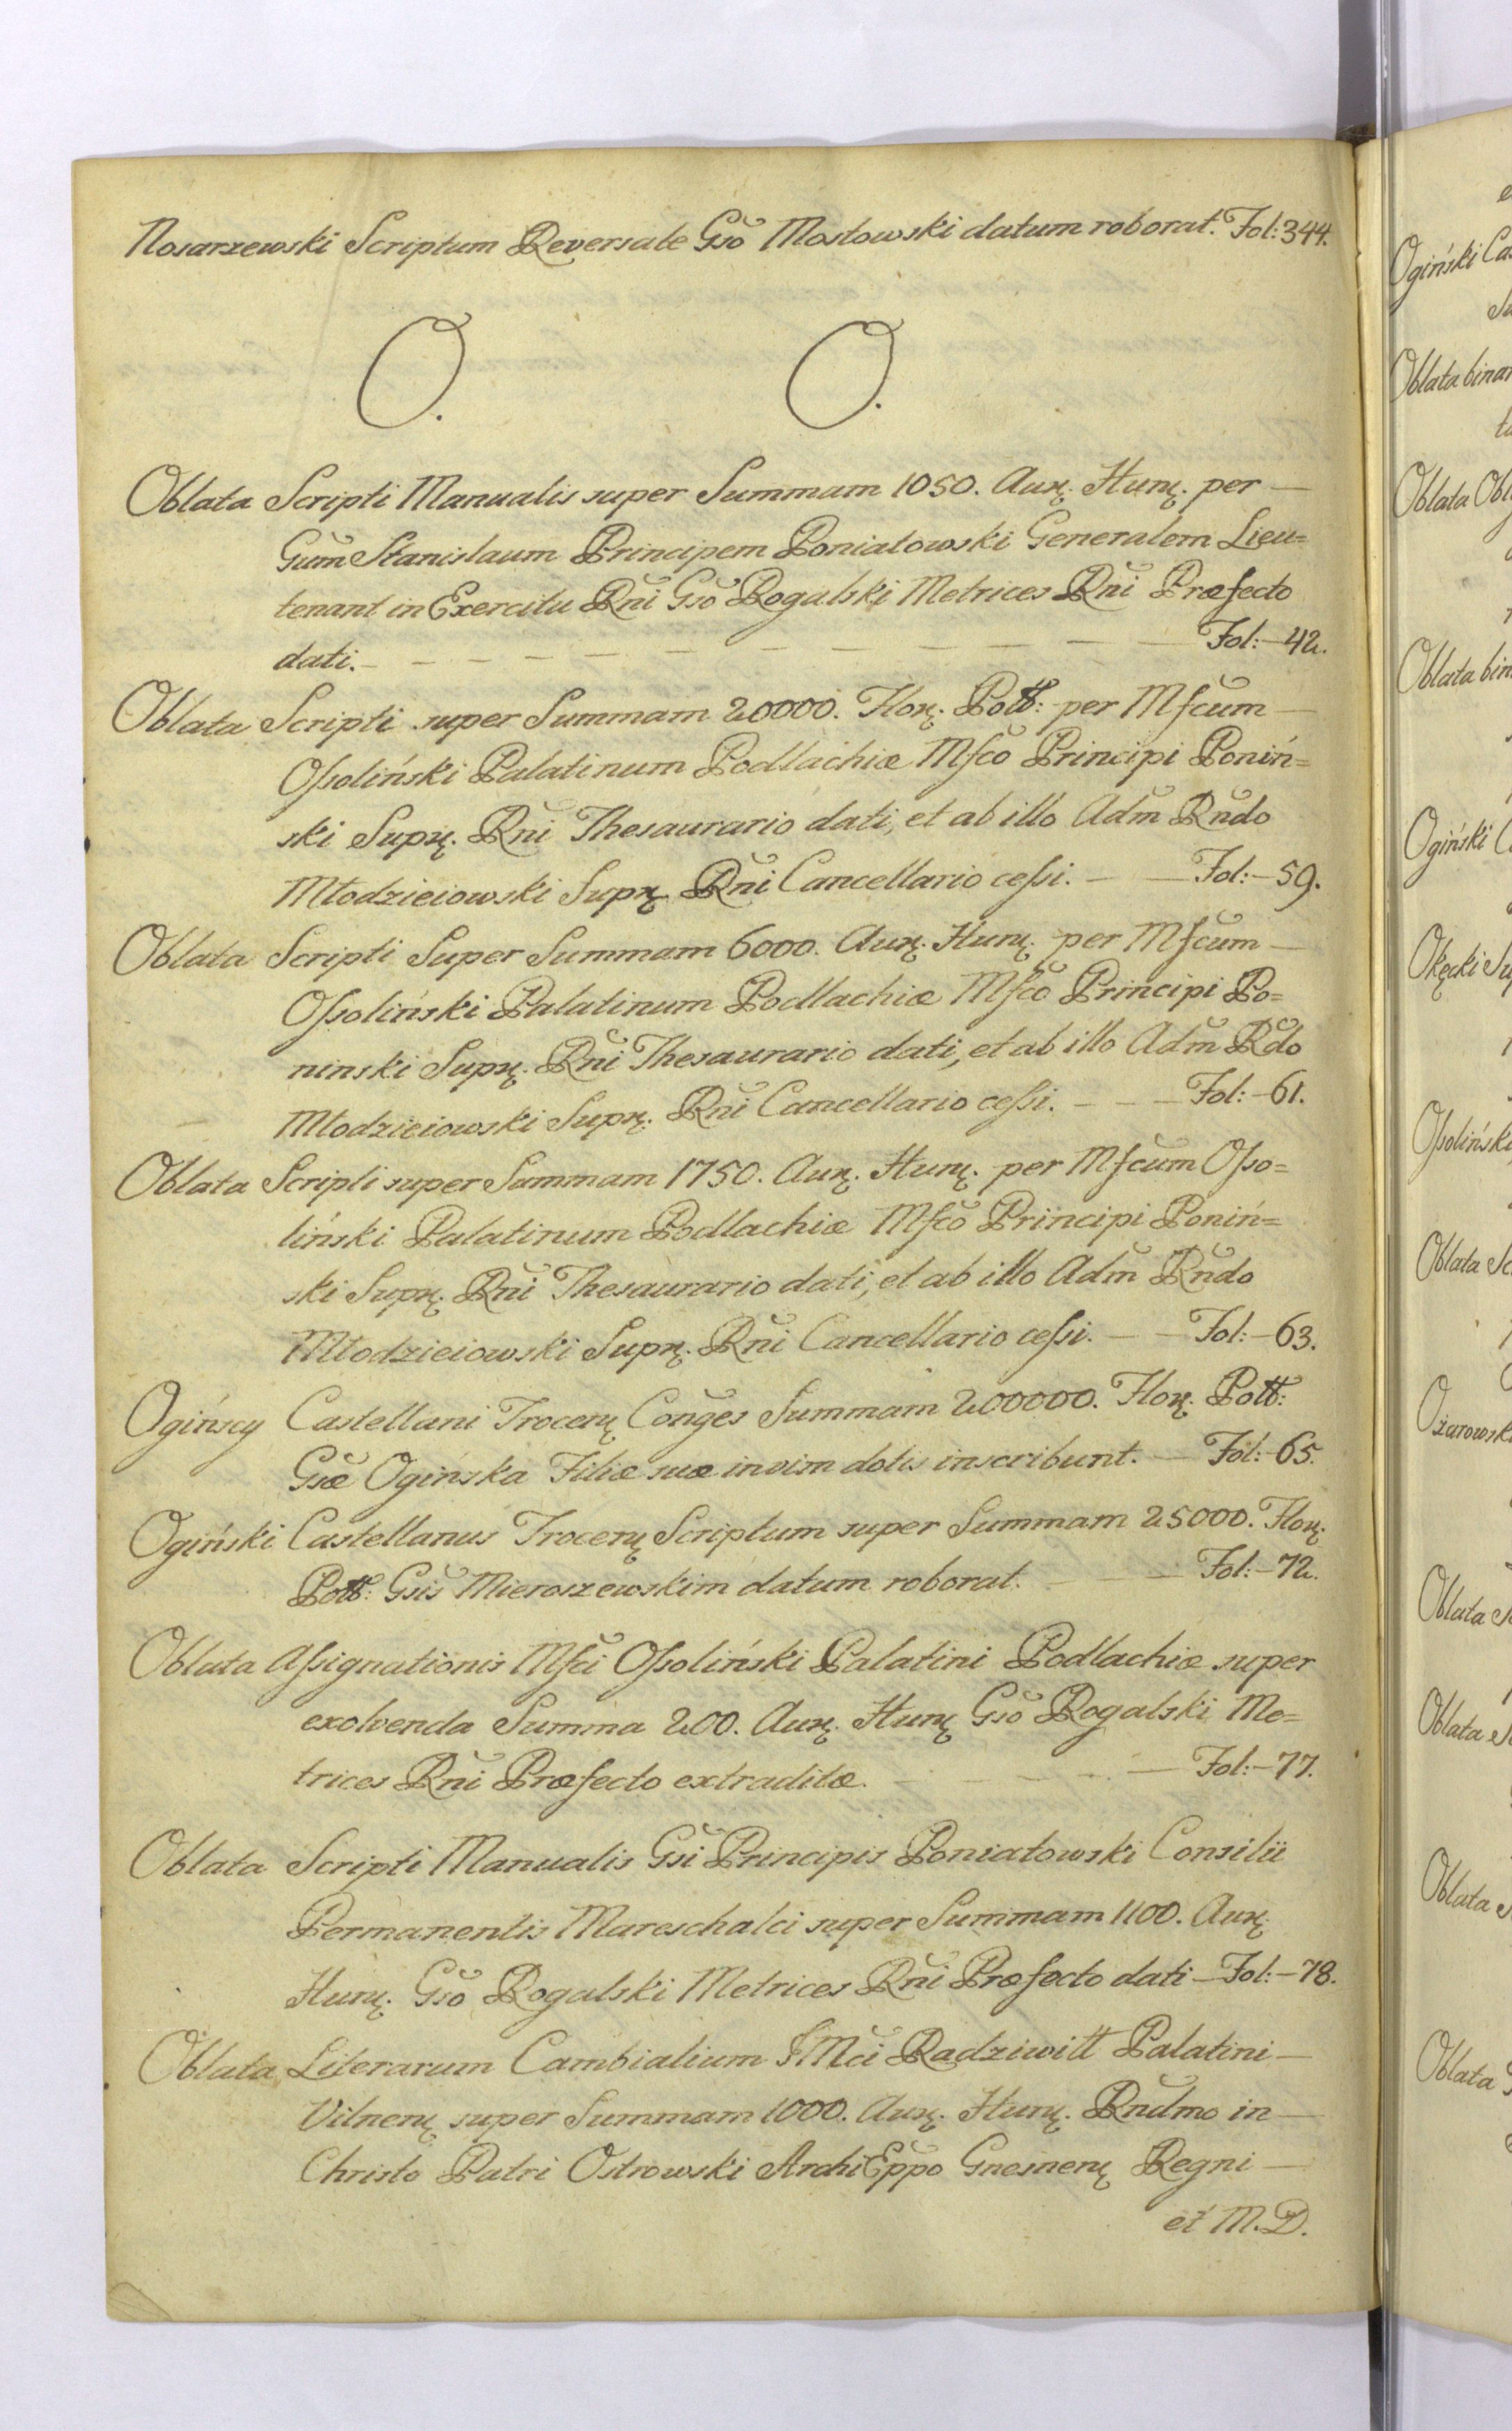 Nosarzewski Scriptum Reversale Gsō Mostowski datum roborat. Fol: 344.
O. O.
Oblata Scripti Manualis super Summam 1050. Aurꝝ. Hunꝝ. per —
Gsum Stanislaum Principem Poniatowski Generalem Lieu=
tenant in Exercitu Rni Gso Rogalski Metrices Rni Præfecto
dati. — — — — — — — — — — Fol: — 42.
Oblata Scripti super Summam 20000. Florꝝ. Poll: per Mfcum —
Oſsoliński Palatinum Podlachiæ Mfco Principi Poniń=
ski Supꝝ. Rni Thesaurario dati, et ab illo Adm Rndo
Młodzieiowski Supꝝ. Rni Cancellario ceſsi. — — Fol: — 59.
Oblata Scripti Super Summam 6000. Aurꝝ. Hunꝝ. per Mfcum —
Oſsoliński Palatinum Podlachiæ Mfco Principi Po=
ninski Supꝝ. Rni Thesaurario dati, et ab illo Adm Rdo
Młodzieiowski Supꝝ. Rni Cancellario ceſsi. — — — Fol: — 61.
Oblata Scripti super Summam 1750. Aurꝝ. Hunꝝ. per Mfcum Oſso=
liński Palatinum Podlachiæ Mfco Principi Poniń=
ski Supꝝ. Rni Thesaurario dati, et ab illo Adm Rndo
Młodzieiowski Supꝝ. Rni Cancellario ceſsi. — — Fol: — 63.
Ogińscy Castellani Trocenꝝ Conges Summam 200000. Florꝝ. Poll:
Gsæ Ogińska Filiæ suæ in vim dotis inscribunt. — Fol: — 65.
Ogiński Castellanus Trocenꝝ Scriptum super Summam 25000. Florꝝ.
Poll: Gsis Mieroszewskim datum roborat. — — — Fol: — 72.
Oblata Aſsignationis Mfci Oſsoliński Palatini Podlachiæ super
exolvenda Summa 200. Aurꝝ. Hunꝝ Gso Rogalski Me=
trices Rni Præfecto extraditæ. — — — — — Fol: — 77.
Oblata Scripti Manualis Gsi Principis Poniatowski Consilii
Permanentis Mareschalci super Summam 1100. Aurꝝ.
Hunꝝ. Gso Rogalski Metrices Rni Præfecto dati — Fol: — 78.
Oblata Literarum Cambialium Mci Radziwiłł Palatini —
Vilnenꝝ super Summam 1000. Aurꝝ. Hunꝝ. Rndmo in —
Christo Patri Ostrowski Archi Eppo Gnesnenꝝ Regni —
et M.D.
Ogiński
Oblata
Oblata
Oblata
Ogiński
Okęcki
Oſsolińsk
Oblata
Ożarowsk
Oblata
Oblata
Oblata
Oblata